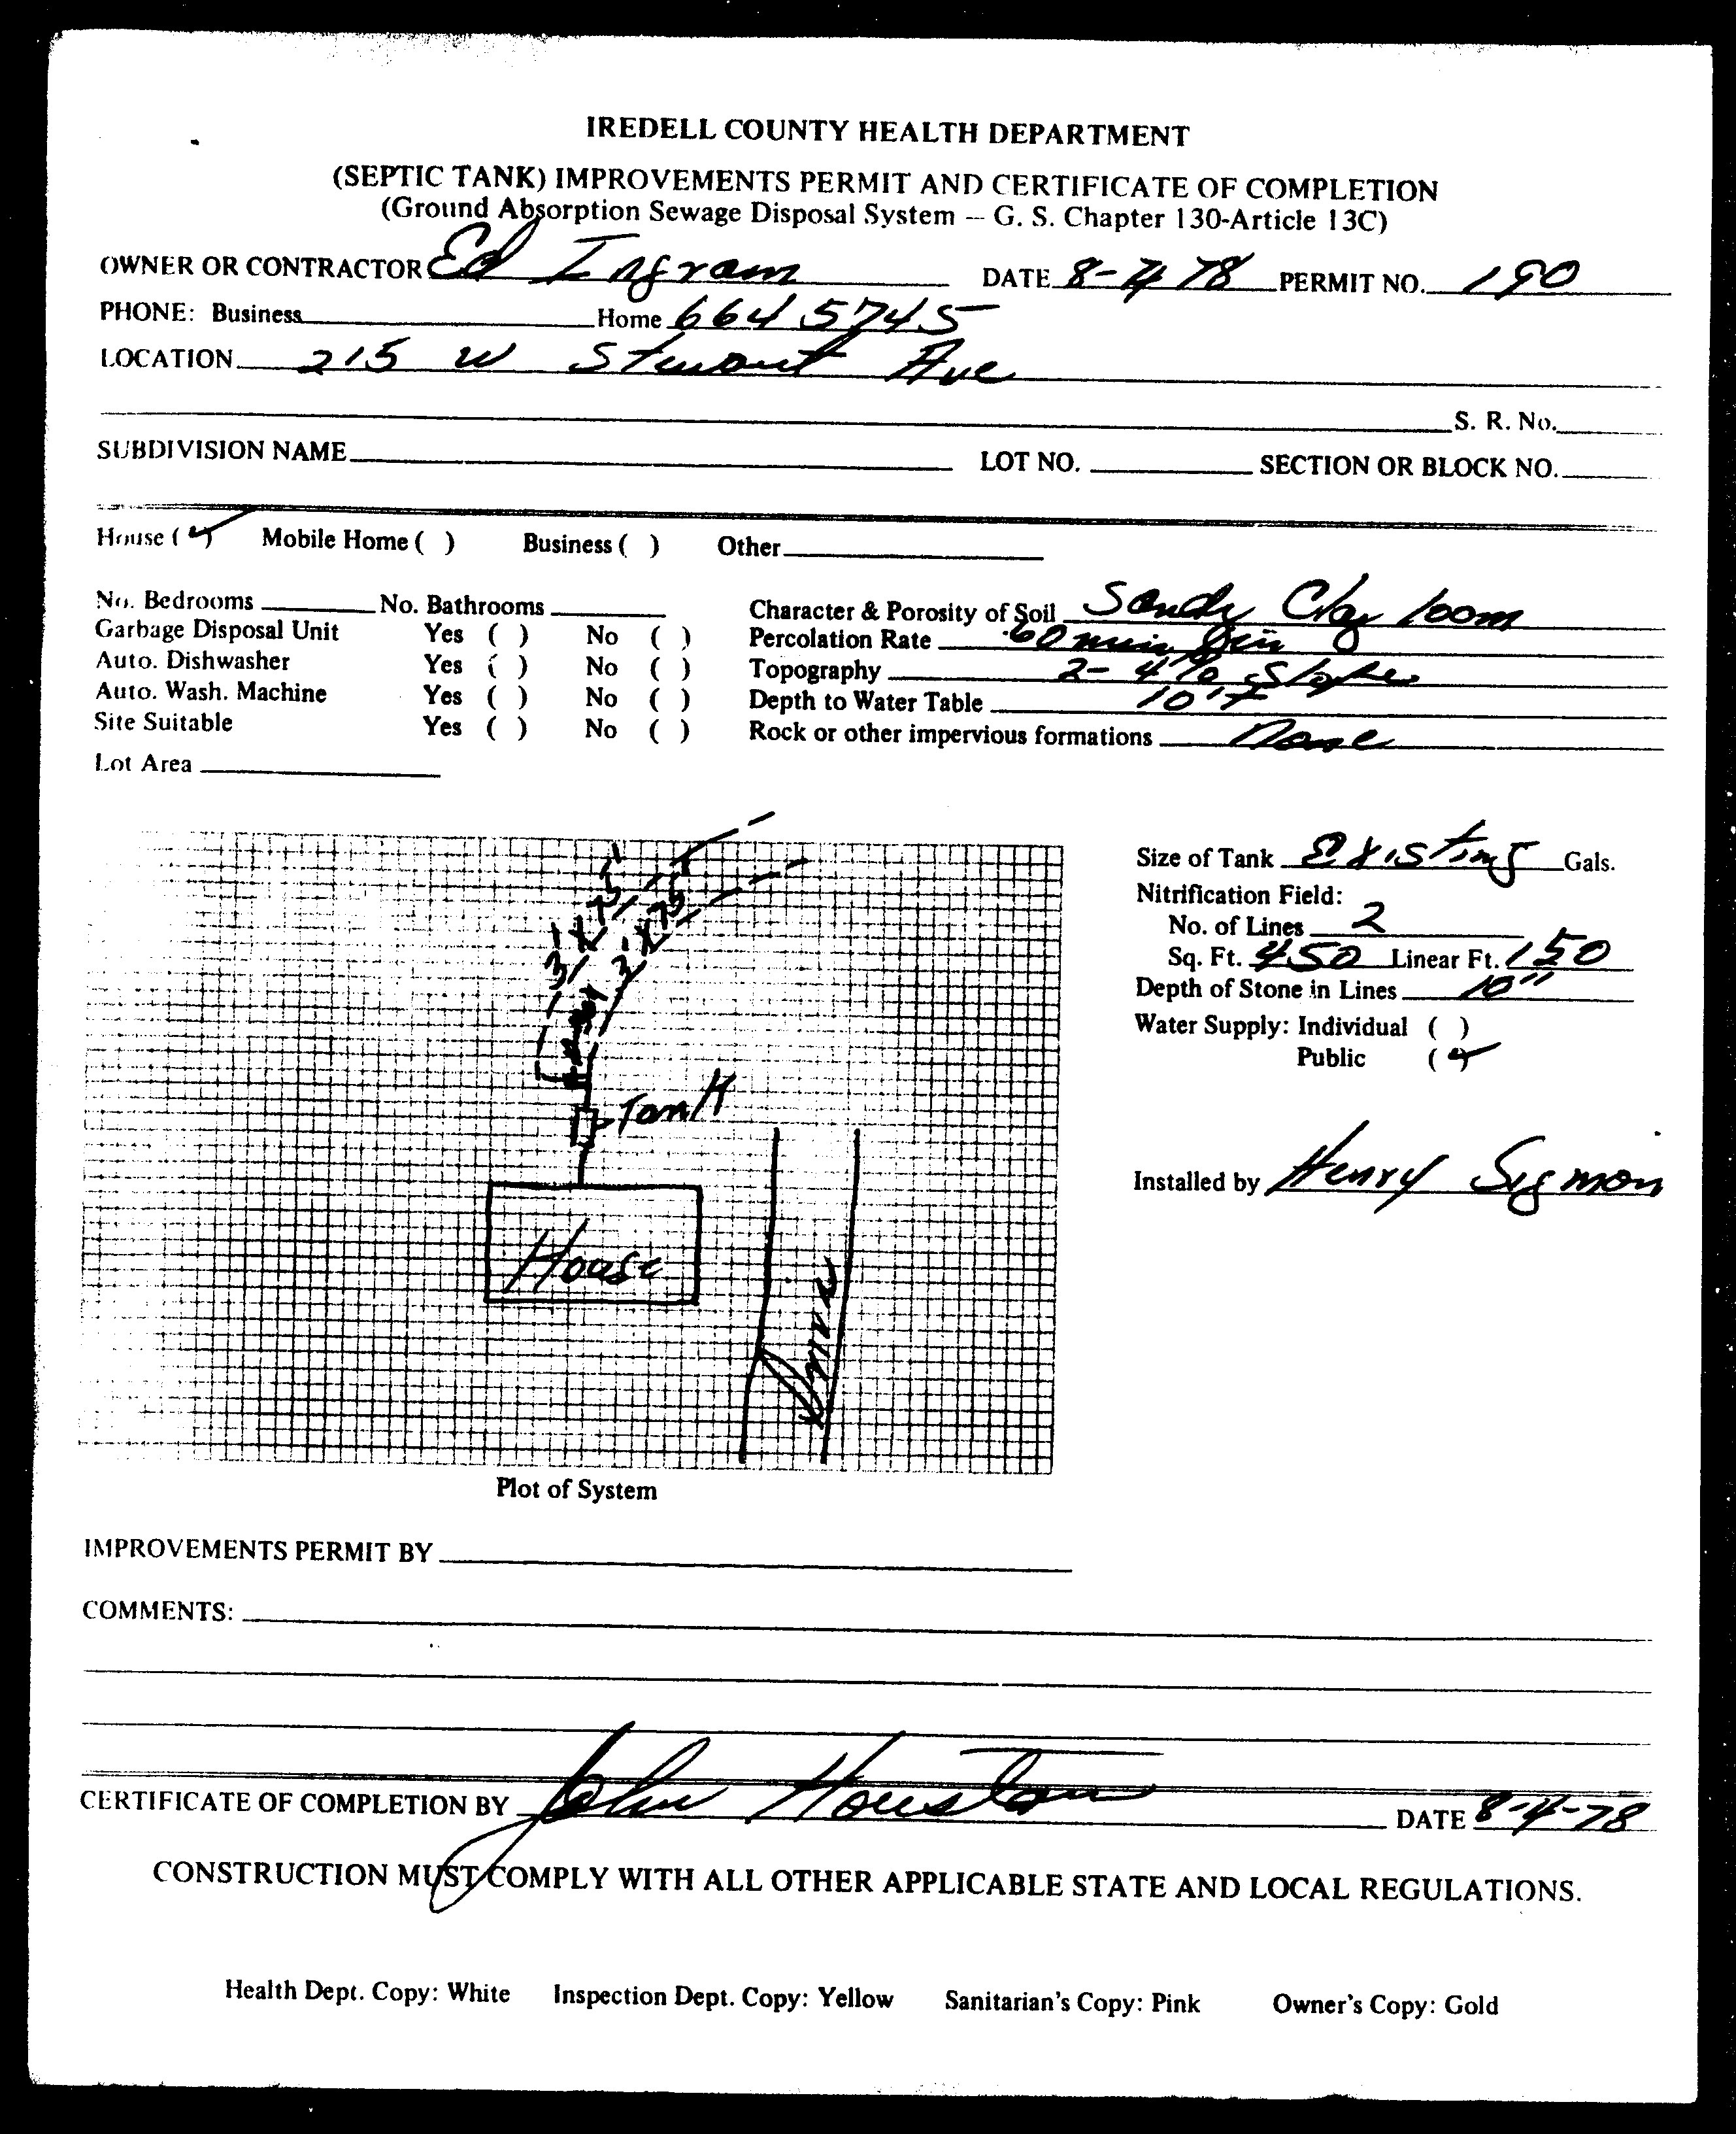 IREDELL COUNTY HEALTH DEPARTMENT
(SEPTIC TANK) IMPROVEMENTS PERMIT AND CERTIFICATE OF COMPLETION
(Ground Absorption Sewage Disposal System -- G. S. Chapter 130-Article 13C)
OWNER OR CONTRACTOR Ed Ingram DATE 8-4 78 PERMIT NO. 190
PHONE: Business Home 664 5745
LOCATION 215 W Stewart Ave
S. R. No.
SUBDIVISION NAME LOT NO. SECTION OR BLOCK NO.
House (✓) Mobile Home ( ) Business ( ) Other
No. Bedrooms No. Bathrooms Character & Porosity of Soil Sandy Clay loom
Garbage Disposal Unit Yes ( ) No ( ) Percolation Rate 60 min/in
Auto. Dishwasher Yes ( ) No ( ) Topography 2-4% Slope
Auto. Wash. Machine Yes ( ) No ( ) Depth to Water Table 10'+
Site Suitable Yes ( ) No ( ) Rock or other impervious formations None
Lot Area
3'X75'
3'X75'
Tank
House
Drive
Plot of System
Size of Tank Existing Gals.
Nitrification Field:
No. of Lines 2
Sq. Ft. 450 Linear Ft. 150
Depth of Stone in Lines 10"
Water Supply: Individual ( )
Public (✓)
Installed by Henry Sigmon
IMPROVEMENTS PERMIT BY
COMMENTS:
CERTIFICATE OF COMPLETION BY John Houston DATE 8-4-78
CONSTRUCTION MUST COMPLY WITH ALL OTHER APPLICABLE STATE AND LOCAL REGULATIONS.
Health Dept. Copy: White Inspection Dept. Copy: Yellow Sanitarian's Copy: Pink Owner's Copy: Gold